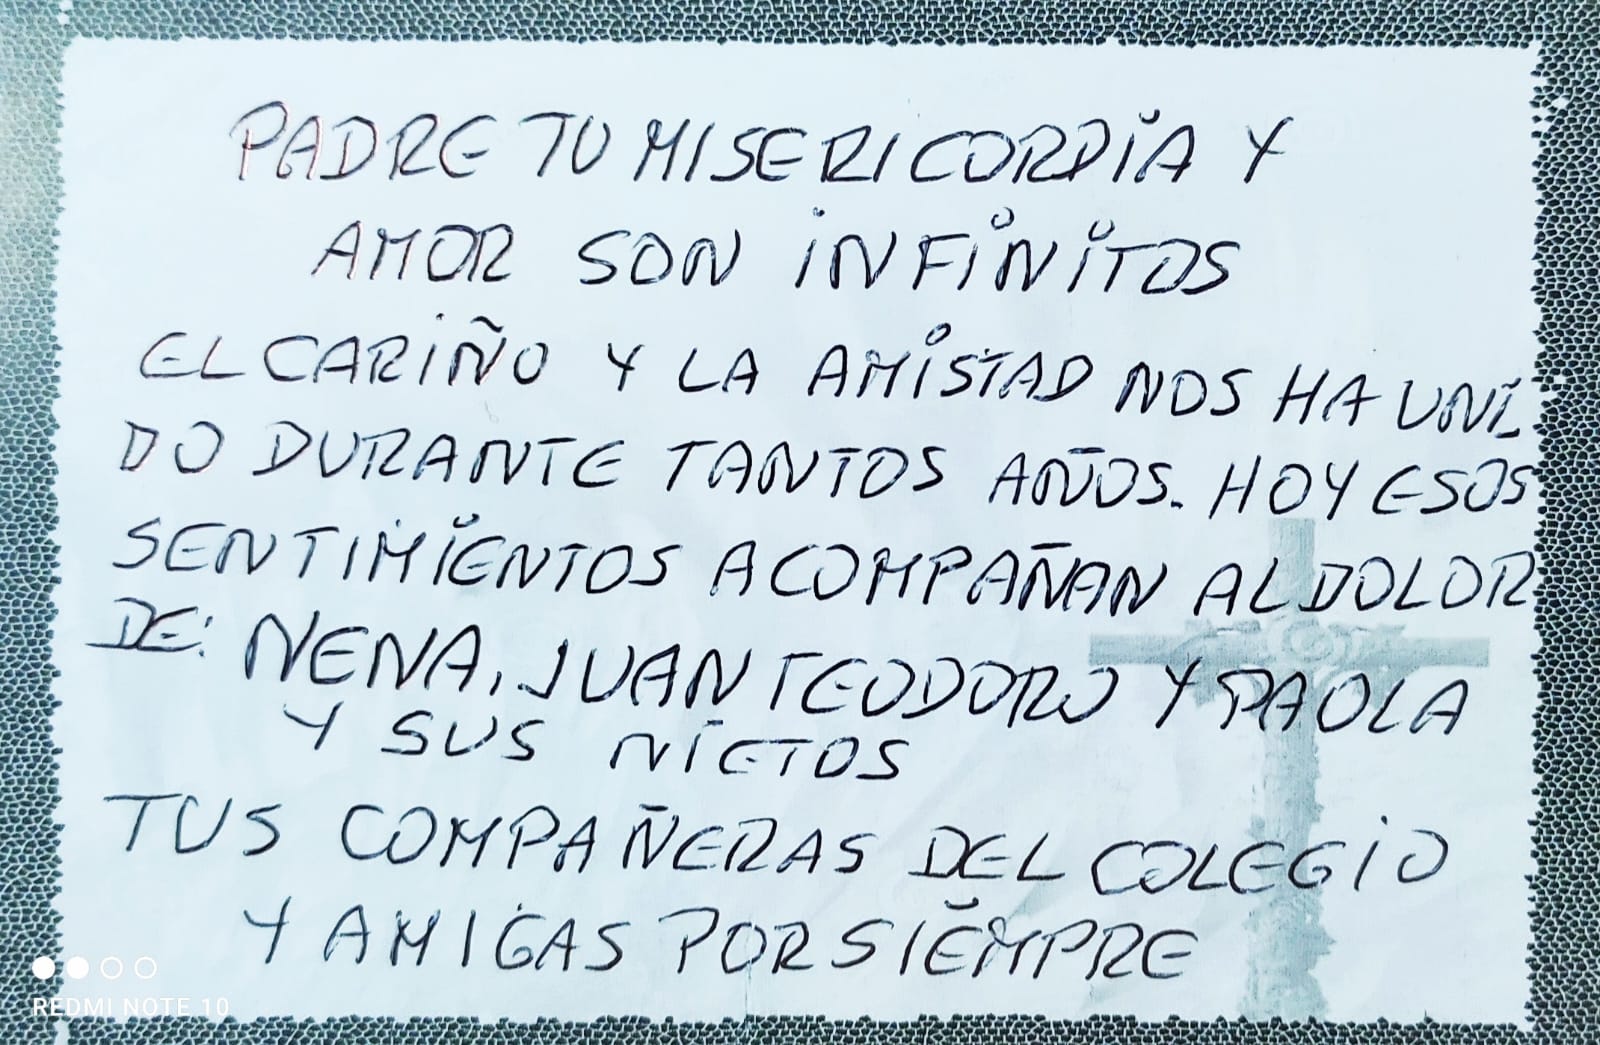 PADRE TU MISERICORDIA Y
AMOR SON INFINITOS
EL CARIÑO Y LA AMISTAD NOS HA UNI-
DO DURANTE TANTOS AÑOS. HOY ESOS
SENTIMIENTOS ACOMPAÑAN AL DOLOR
DE: NENA, JUAN TEODORO Y PAOLA
Y SUS NIETOS
TUS COMPAÑERAS DEL COLEGIO
Y AMIGAS POR SIEMPRE
REDMI NOTE 10